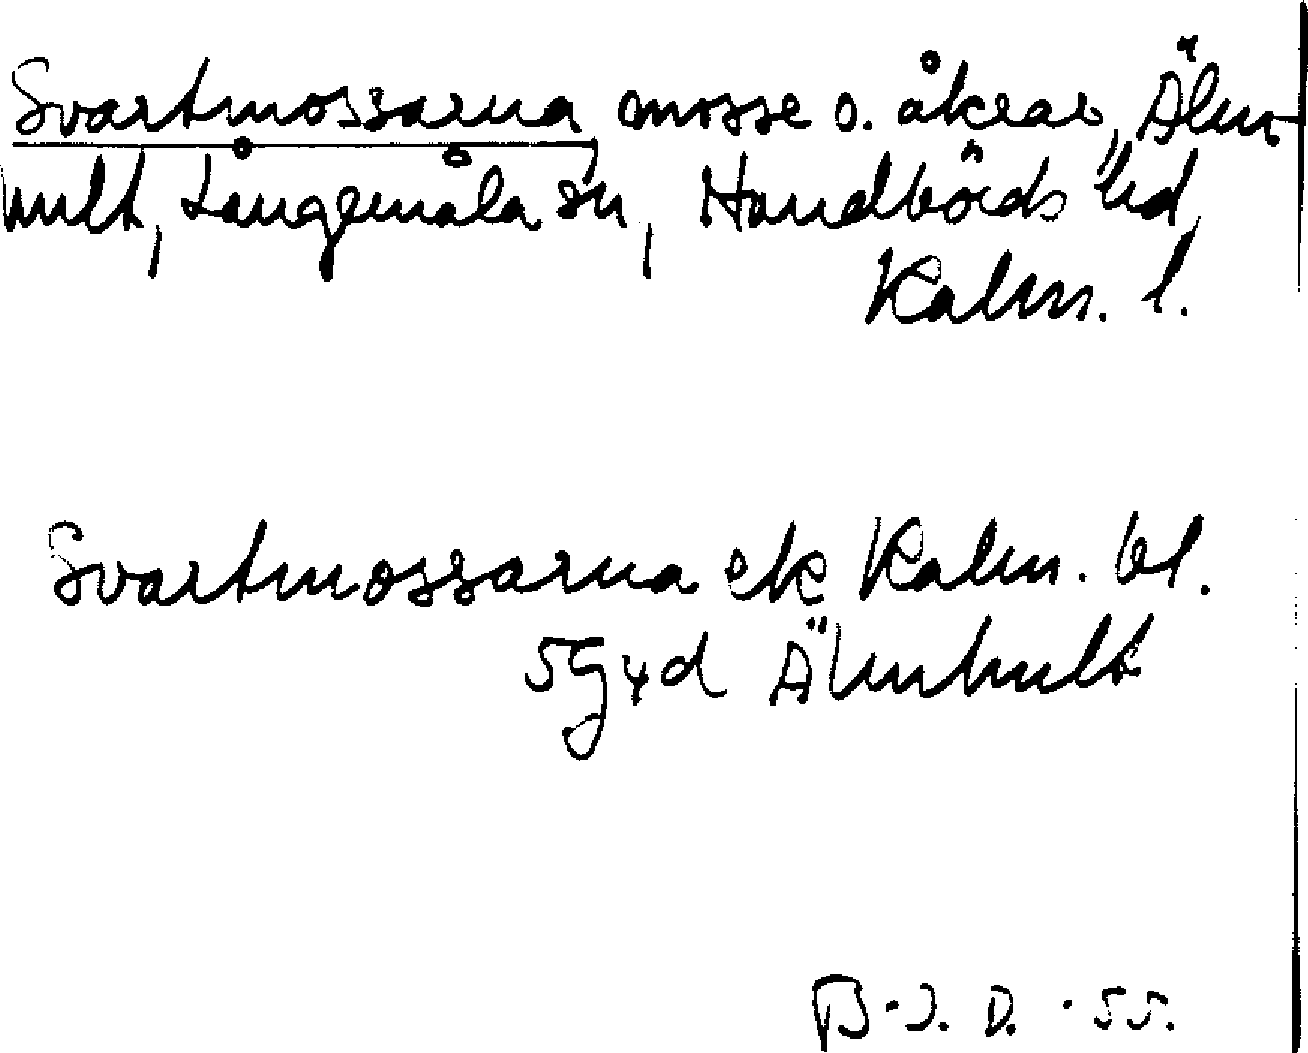 Svartmossarna, mosse o. åkrar, Älm-
hult, Långemåla sn, Handbörds hd,
Kalm. l.
Svartmossarna ek Kalm. bl.
5G4d Älmhult
B-J. D. -55.